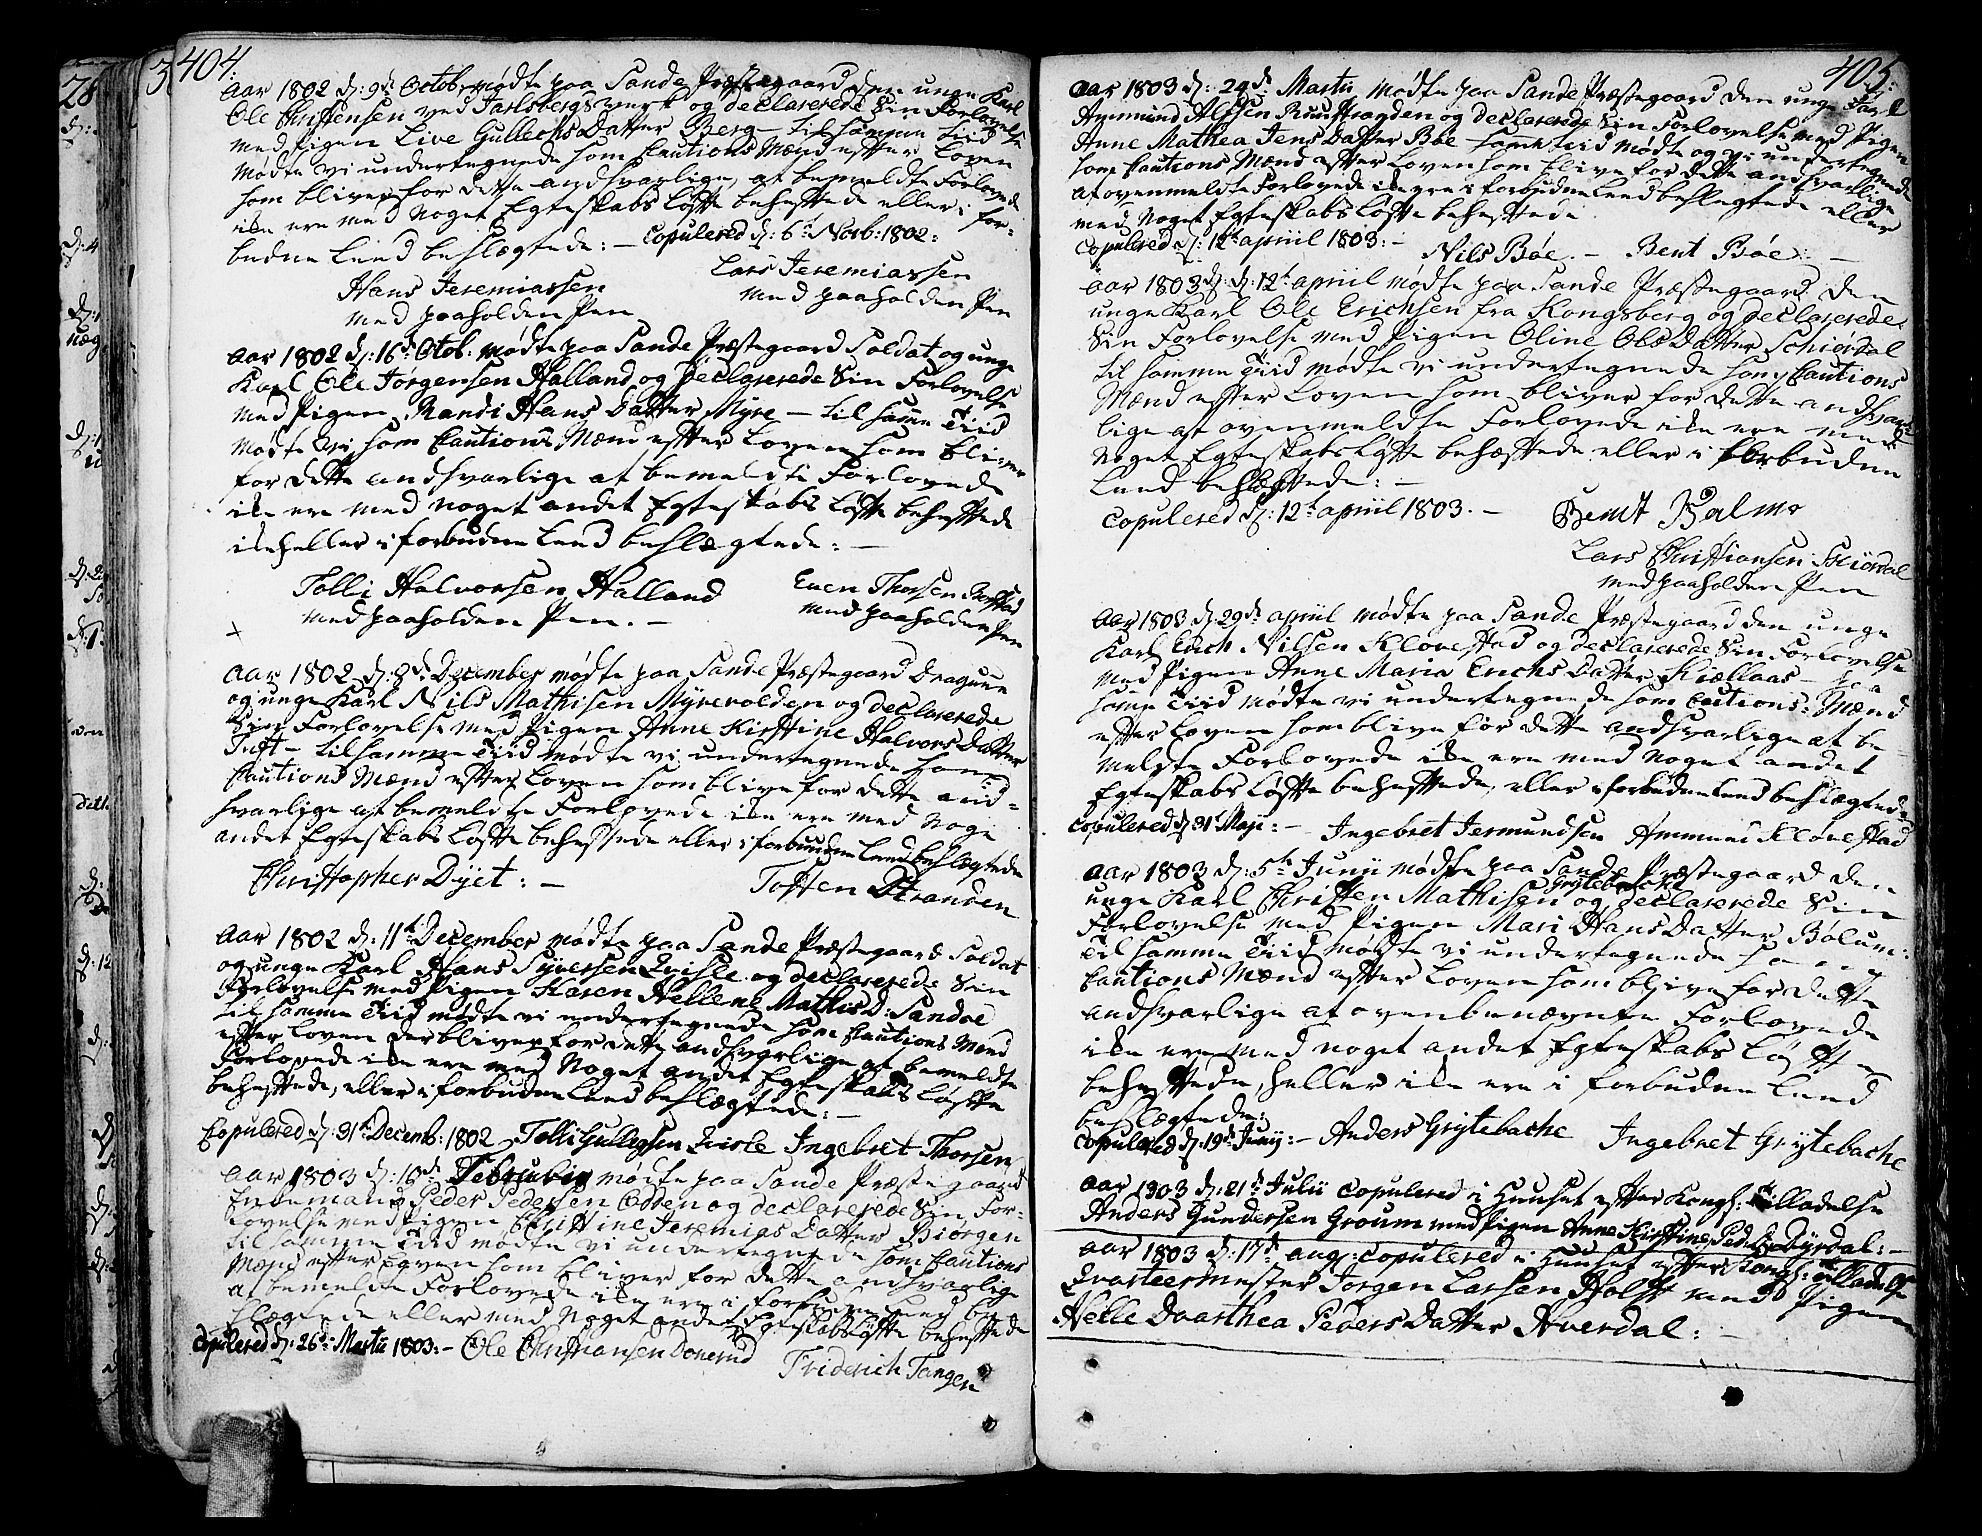 404.
Aar 1802 d: 9de Octob. mødte paa Sande Præstegaard den unge Karl
Ole Christensen ved Jarlsbergs verk og declarerede Sin Forlovelse
med Pigen Live Gullechs Datter Berg – til samme Tiid
mødte vi undertegnede som Cautions Mænd efter Loven
som bliver for dette andsvarlige, at bemeldte Forlovede
ike ere med Noget Egteskabs Løfte behæftede eller i for-
budne Leed beslægtede: – Copulered d: 6te Novb: 1802:
Hans Jeremiassen
med paaholden Pen
Lars Jeremiassen
med paaholden Pen
Aar 1802 d: 16de Octob. mødte paa Sande Præstegaard Soldat og unge
Karl Ole Jørgensen Halland og declarerede Sin Forlovelse
med Pigen Randi Hans Datter Myre – til samme Tiid
mødte vi som Cautions Mænd efter Loven som bliver
for dette andsvarlige at bemeldte Forlovede
ike ere med noget andet Egteskabs Løfte behæftede
ike heller i forbudne Leed beslægtede: –
Tolli Halvorsen Halland
med paaholden Pen. –
Even Thorsen
med paaholden Pen
Aar 1802 d: 8de December mødte paa Sande Præstegaard Dragun
og unge Karl Nils Mathisen Myrevolden og declarerede
Sin Forlovelse med Pigen Anne Kirstine Halvors Datter
Tuft – til samme Tiid mødte vi undertegnede som
Cautions Mænd efter Loven som blive for dette and-
svarlige at bemeldte Forlovede ike ere med Noge
andet Egteskabs Løfte behæftede eller i forbudne Leed beslægtede
Christopher Dyet: –
Tosten Stranden
Aar 1802 d: 11te December mødte paa Sande Præstegaard Soldat
og unge Karl Hans Syversen Qvisle og declarerede Sin
Forlovelse med Pigen Karen Hellene Mathis D: Sandøe
til samme Tiid mødte vi undertegnede som Cautions Mænd
efter Loven der bliver for dette andsvarlige at bemeldte
Forlovede ike ere med Noget andet Egteskabs Løfte
behæftede, eller i forbudne Leed beslægtede: –
Copulered d: 31te Decemb: 1802 Tolli Gullichsen Qvisle Ingebret Thorsen
Aar 1803 d: 18de Februarii mødte paa Sande Præstegaard
Enkemand Peder Pedersen Odden og declarerede Sin For-
lovelse med Pigen Christine Jeremias Datter Biørgen
til samme Tiid mødte vi undertegnede som Cautions
Mænd efter Loven som bliver for dette andsvarlige
at bemeldte Forlovede ike ere i forbudne Leed be-
slægtede eller med Noget andet Egteskabs Løfte behæftede
Copulered d: 26de Martii 1803: – Ole Christiansen Donerud
Friderich Tangen
405.
Aar 1803 d: 24de Martii mødte paa Sande Præstegaard den unge Karl
Ammund Alfsen Haagden og declarerede Sin Forlovelse med Pigen
Anne Mathea Jens Datter Bøe – samme tiid mødte og vi undertegnede
som Cautions Mænd efter Loven som blive for dette andsvarlige
at ovenmeldte Forlovede ike ere i forbudne Leed beslegtede eller
med Noget Egteskabs Løfte behæftede
Copulered d: 12te april 1803: –
Nils Bøe. – Bent Bøe: –
Aar 1803 d: 12te april mødte paa Sande Præstegaard den
unge Karl Ole Erichsen fra Kongsberg og declarerede
Sin Forlovelse med Pigen Oline Ols Datter Schiørdal
til samme Tiid mødte vi undertegnede som Cautions
Mænd efter Loven som bliver for dette andsvar-
lige at ovenmeldte Forlovede ike ere med
Noget Egteskabs Løfte behæftede eller i forbudne
Leed beslægtede: –
Copulered d: 12te april 1803. – Bent Balmo
Lars Christiansen Skiørdal
med paaholden Pen
Aar 1803 d: 29de april mødte paa Sande Præstegaard den unge
Karl Erich Nilsen Klovestad og declarerede Sin Forlovelse
med Pigen Anne Maria Erichs Datter Kiellaas – paa
samme Tiid mødte vi undertegnede som Cautions: Mænd
efter Loven som blive for dette andsvarlige at be-
meldte Forlovede ike ere med Noget andet
Egteskabs Løfte behæftede, eller i forbudne Leed beslægtede
Copulered d 31te Maji: – Ingebret Jermundsen Ammund Klovestad
Aar 1803 d: 5te Junii mødte paa Sande Præstegaard den
Grytebache
unge Karl Christen Mathisen og declarerede Sin
Forlovelse med Pigen Mari Hans Datter Bølum:
Til samme Tiid mødte vi undertegnede som
Cautions Mænd efter Loven som blive for dette
andsvarlige at ovenbenævnte Forlovede
ike ere med noget andet Egteskabs Løfte
behæftede, heller ike ere i forbudne Leed
beslægtede:
Copulered d: 19de Junij: – Anders Grytebache Ingebret Grytebache
Aar 1803 d: 21de Julii Copulered i Huuset efter Kongl: Tilladelse
Anders Gundersen Groum med Pigen Anne Kirstine Ped: D: Dyrdal: –
Aar 1803 d: 17de aug: Copulered i Huuset efter Kongl: Tilladelse
Qvarteermester Jørgen Larsen Holst med Pigen
Helle Dorthea Peders Datter Averdal: –